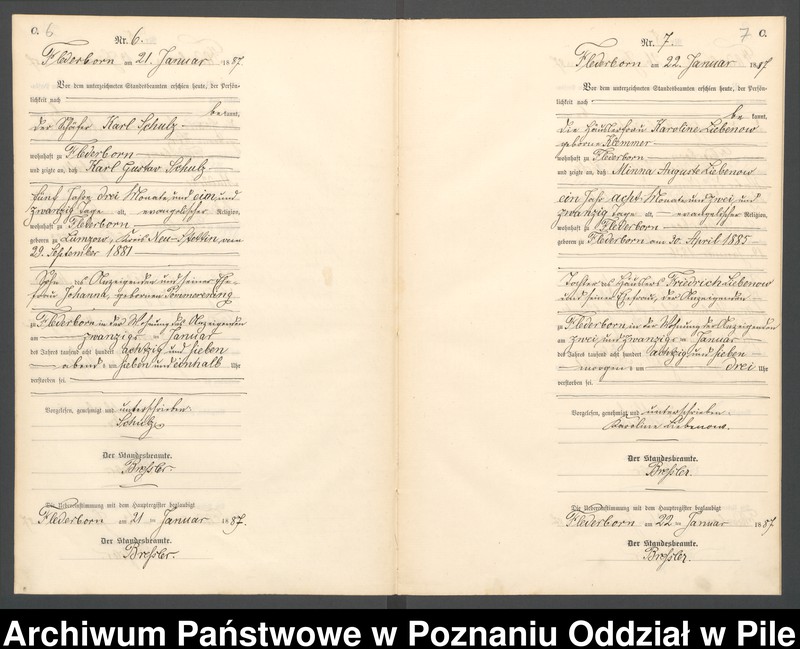 C. 6
Nr. 6.
Flederborn am 21. Januar 1887.
Vor dem unterzeichneten Standesbeamten erschien heute, der Persön-
lichkeit nach
bekannt,
der Schäfer Karl Schulz
wohnhaft zu Flederborn
und zeigte an, daß Karl Gustav Schulz
fünf Jahre drei Monate und ein und
zwanzig Tage alt, evangelischer Religion,
wohnhaft zu Flederborn
geboren zu Lümzow, Kreis Neu-Stettin, am
29. September 1881
Sohn des Anzeigenden und seiner Ehe-
frau Johanna, geborenen
zu Flederborn in der Wohnung des Anzeigenden
am zwanzigsten Januar
des Jahres tausend acht hundert achtzig und sieben
abends um sieben und einhalb Uhr
verstorben sei.
Vorgelesen, genehmigt und unterschrieben.
Schulz
Der Standesbeamte.
Bressler.
Die Uebereinstimmung mit dem Hauptregister beglaubigt
Flederborn am 21 ten Januar 1887.
Der Standesbeamte.
Bressler.
7 C.
Nr. 7.
Flederborn am 22. Januar 1887
Vor dem unterzeichneten Standesbeamten erschien heute, der Persön-
lichkeit nach
bekannt,
die Häuslerfrau Karoline Liebenow
geborne Klemmer
wohnhaft zu Flederborn
und zeigte an, daß Minna Auguste Liebenow
ein Jahr acht Monate und zwei und
zwanzig Tage alt, evangelischer Religion,
wohnhaft zu Flederborn
geboren zu Flederborn am 30. April 1885
Tochter des Häuslers Friedrich Liebenow
und seiner Ehefrau, der Anzeigenden
zu Flederborn in der Wohnung der Anzeigenden
am zwei und zwanzigsten Januar
des Jahres tausend acht hundert achtzig und sieben
morgens um drei Uhr
verstorben sei.
Vorgelesen, genehmigt und unterschrieben.
Karoline Liebenow.
Der Standesbeamte.
Bressler.
Die Uebereinstimmung mit dem Hauptregister beglaubigt
Flederborn am 22 ten Januar 1887.
Der Standesbeamte.
Bressler.
Archiwum Państwowe w Poznaniu Oddział w Pile